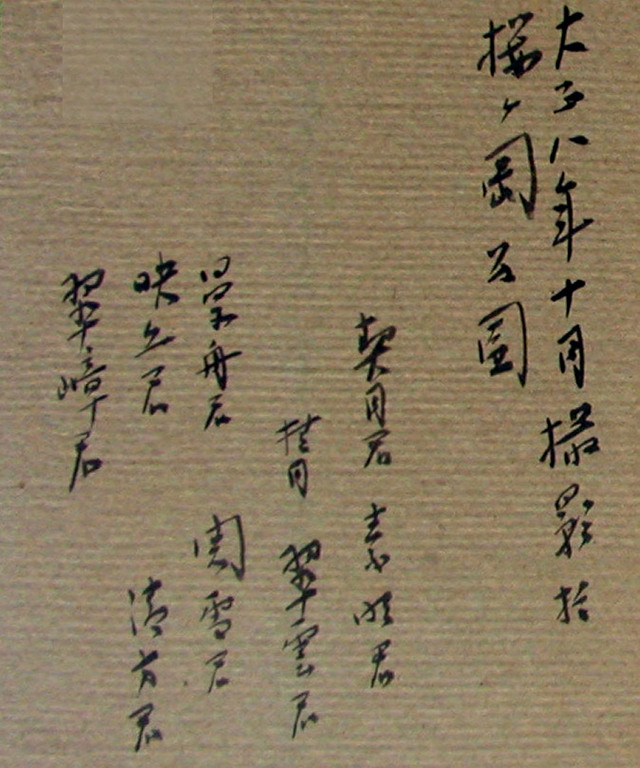 大正八年十月撮影於
櫻ヶ岡公園
契月君 素明君
桂月 翠雲君
曼舟君 関雪君
映丘君 清方君
翠嶂君